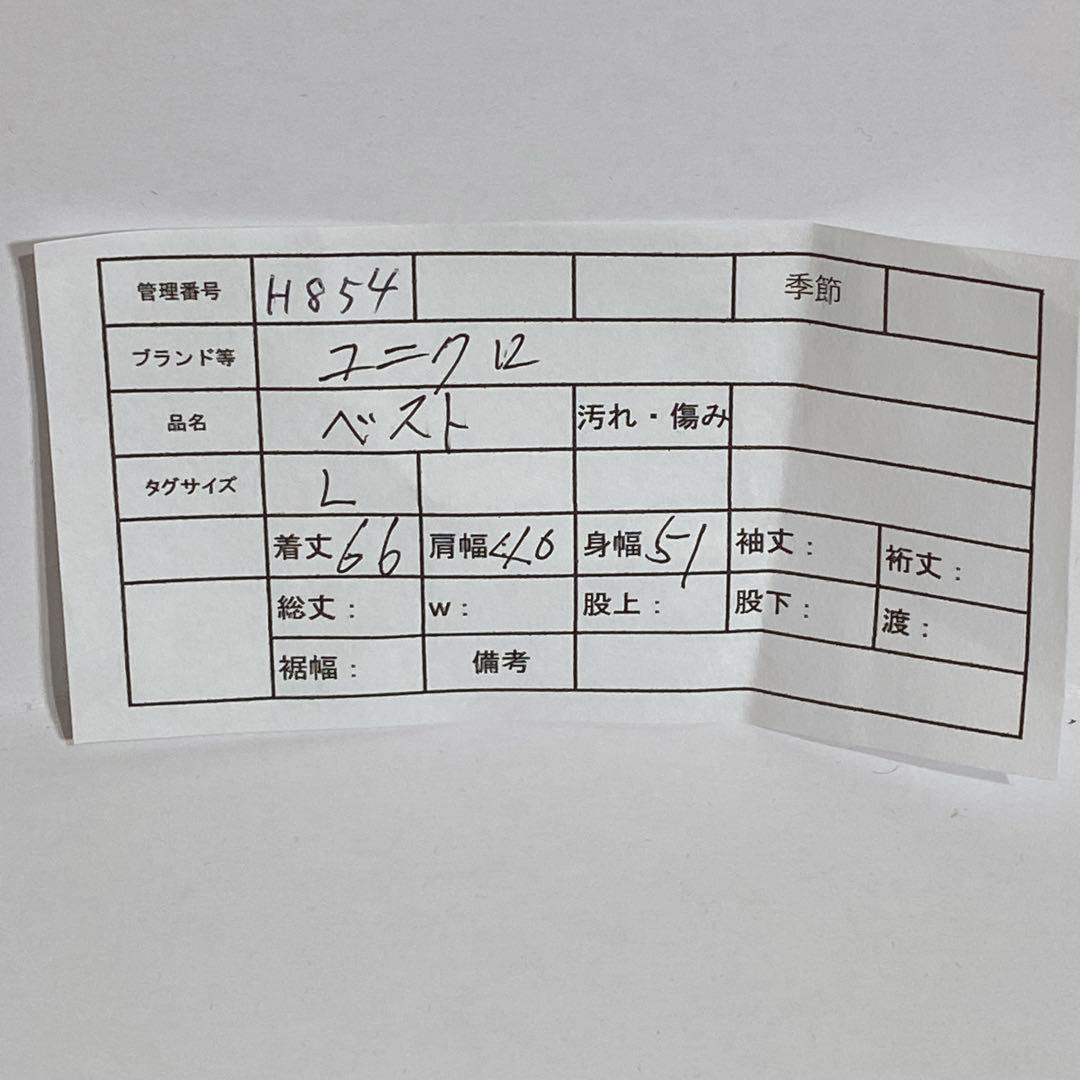 管理番号 H854 季節
ブランド等 ユニクロ
品名 ベスト 汚れ・傷み
タグサイズ L
着丈66 肩幅:40 身幅51 袖丈: 裄丈:
総丈: w: 股上: 股下: 渡:
裾幅: 備考